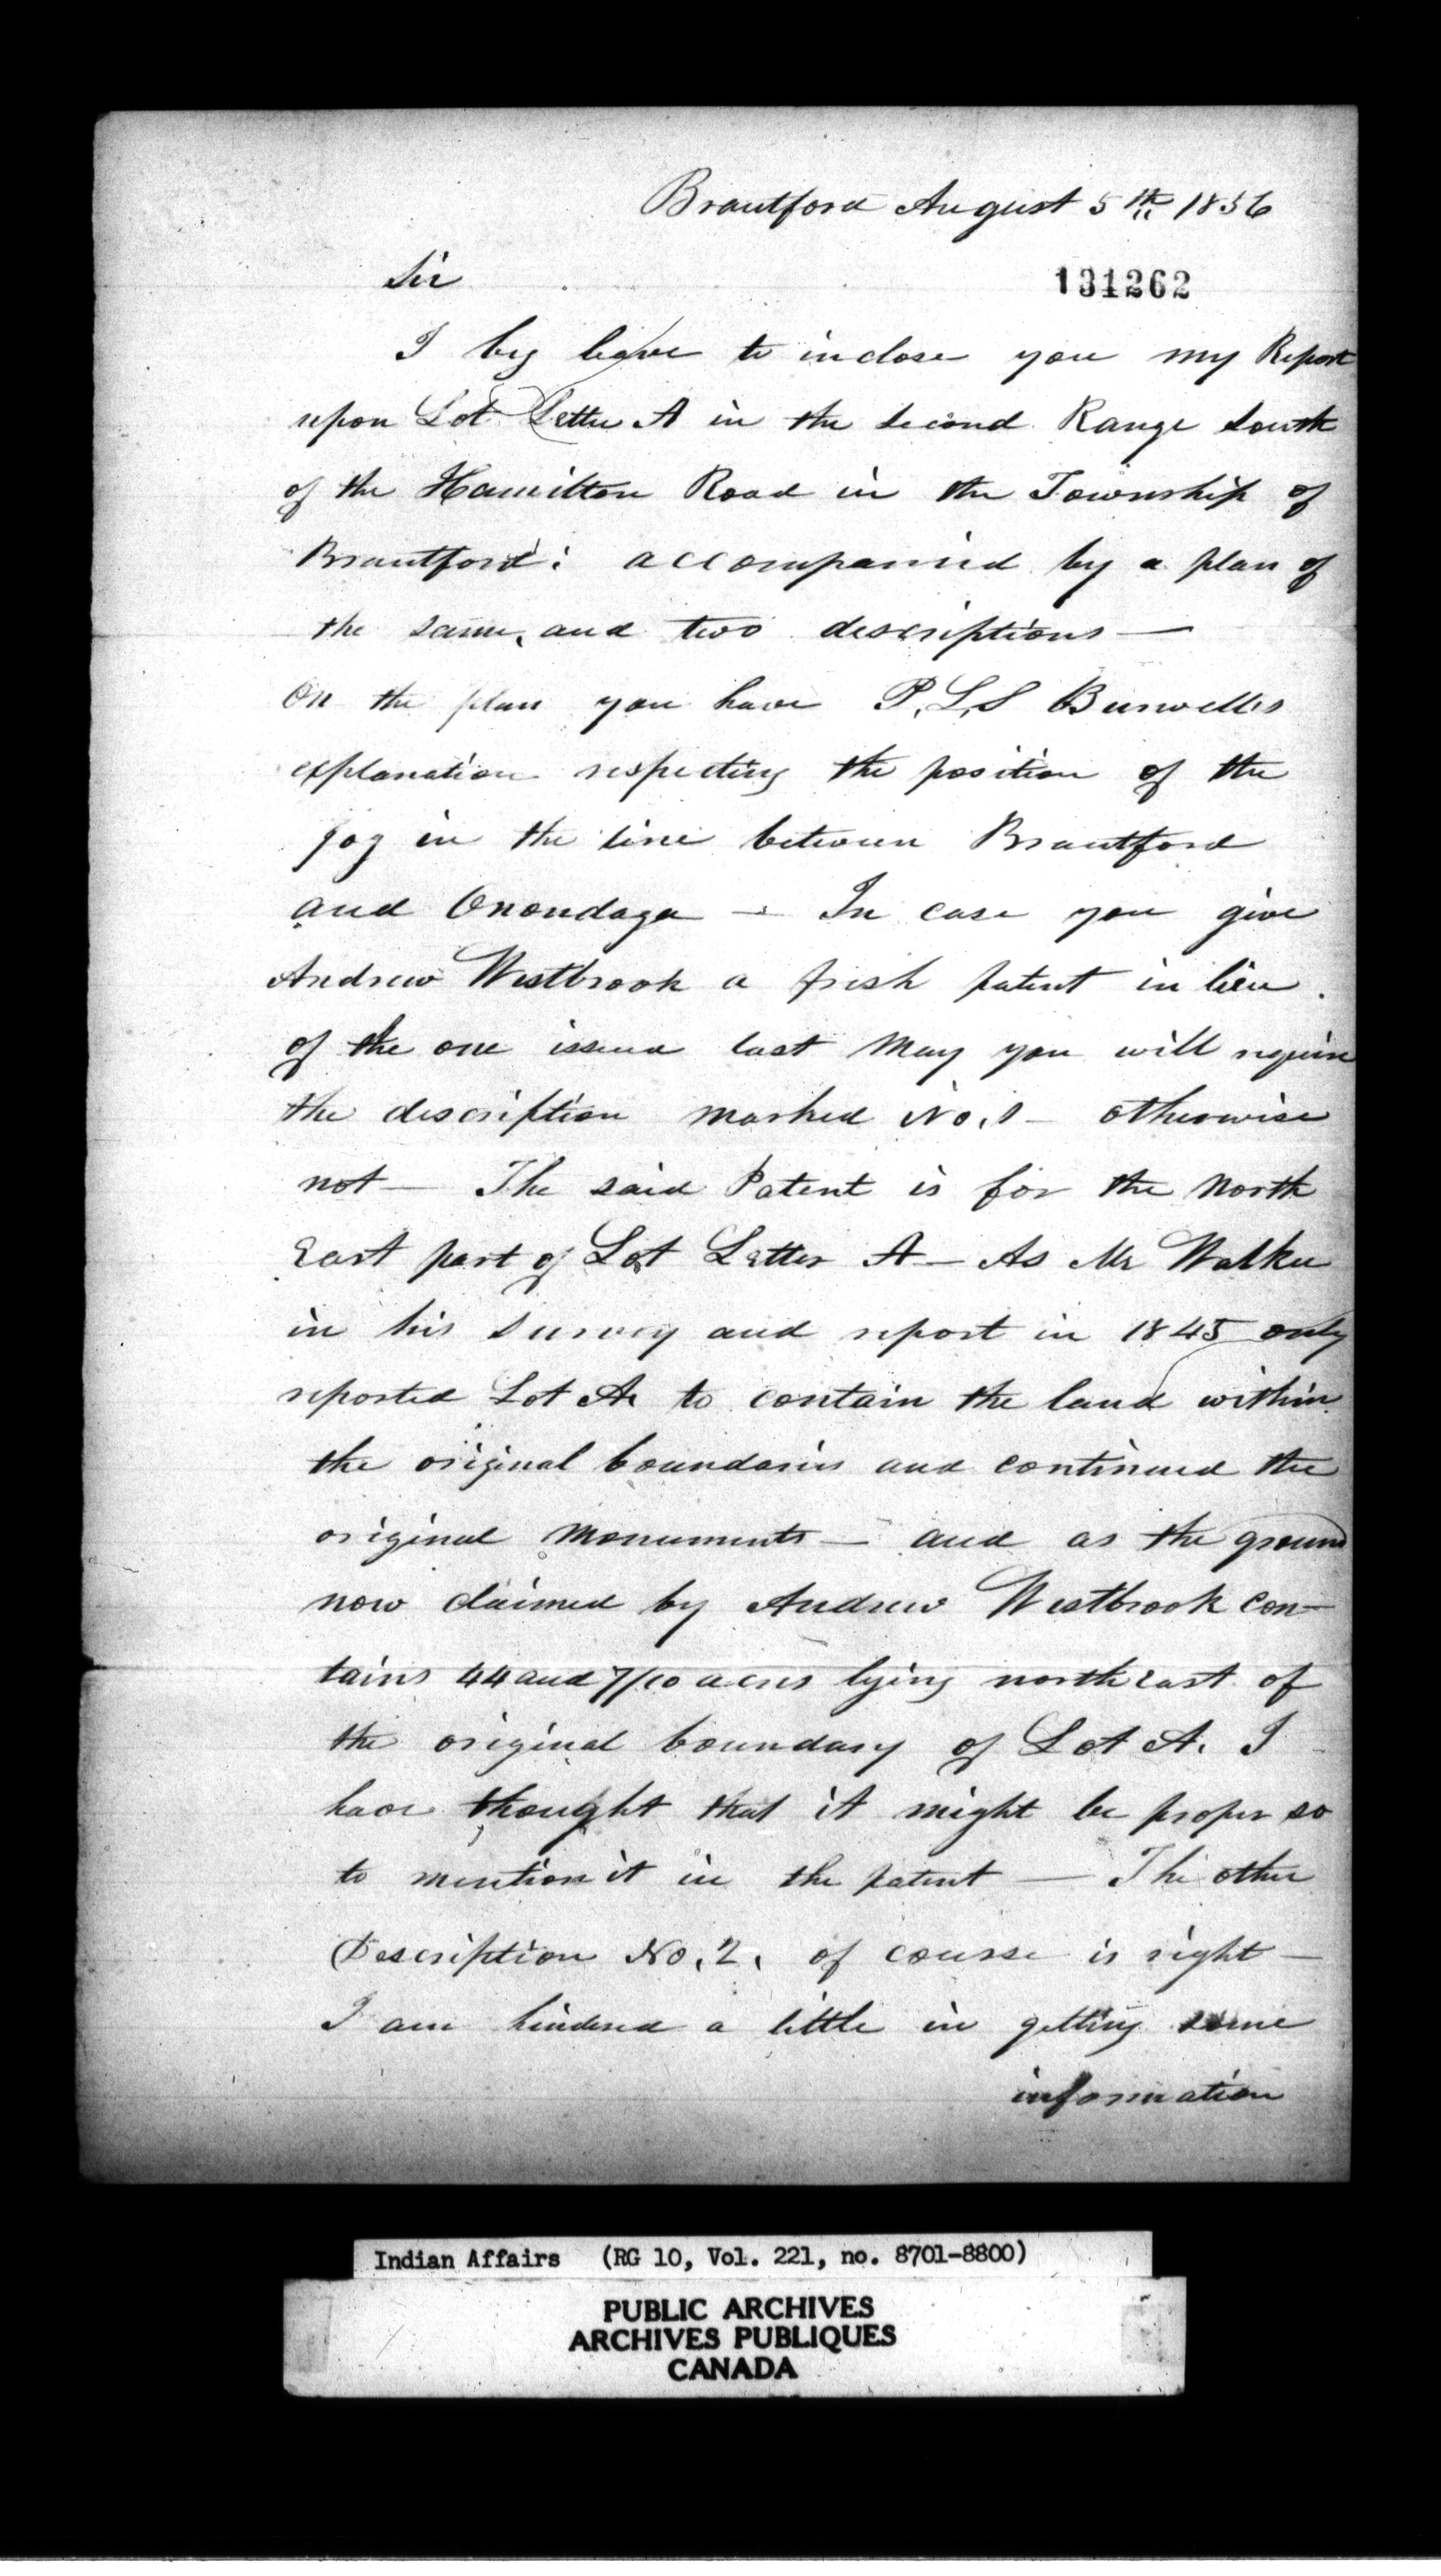 Brantford August 5th 1856
Sir
131262
I beg leave to inclose you my Report
upon Lot Letter A in the second Range south
of the Hamilton Road in the Township of
Brantford: accompanied by a plan of
the same, and two descriptions —
On the plan you have P.L.S Burwells
explanation respecting the position of the
jog in the line between Brantford
and Onondaga — In case you give
Andrew Westbrook a fresh patent in lieu
of the one issued last May you will require
the description marked No. 1 — otherwise
not — The said Patent is for the North
East part of Lot Letter A — As Mr Walker
in his survey and report in 1845 only
reported Lot A. to contain the land within
the original boundaries and continued the
original monuments — and as the ground
now claimed by Andrew Westbrook con-
tains 44 and 7/10 acres lying north east of
the original boundary of Lot A. I
have thought that it might be proper so
to mention it in the patent — The other
Description No. 2. of course is right —
I am hindered a little in getting some
information
Indian Affairs (RG 10, Vol. 221, no. 8701-8800)
PUBLIC ARCHIVES
ARCHIVES PUBLIQUES
CANADA